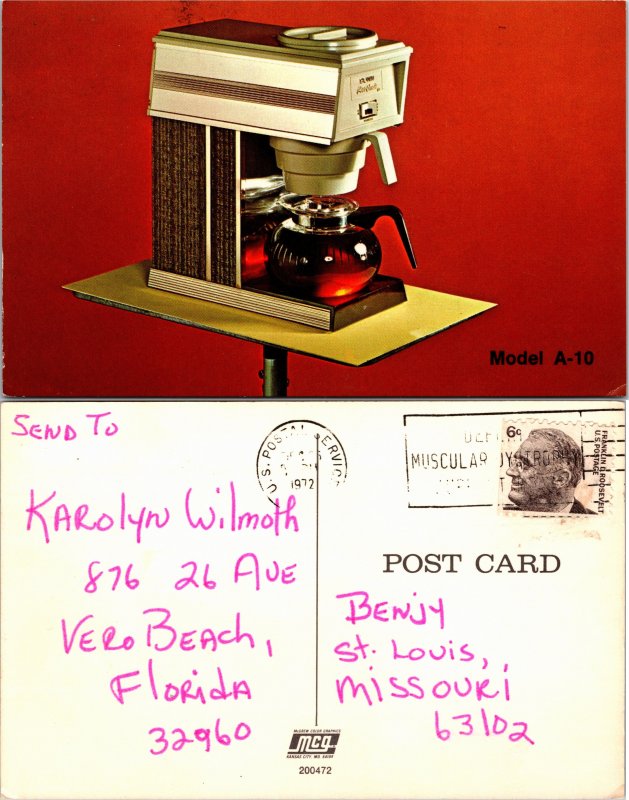 Model A-10
SEND TO
KAROLYN WILMOTH
876 26 AVE
VERO BEACH,
FLORIDA
32960
U.S. POSTAL SERVICE
1972
MUSCULAR DYSTROPHY
6¢
FRANKLIN D. ROOSEVELT
U.S. POSTAGE
POST CARD
BENJY
ST. LOUIS,
MISSOURI
63102
McGREW COLOR GRAPHICS
mcg
KANSAS CITY, MO. 64108
200472